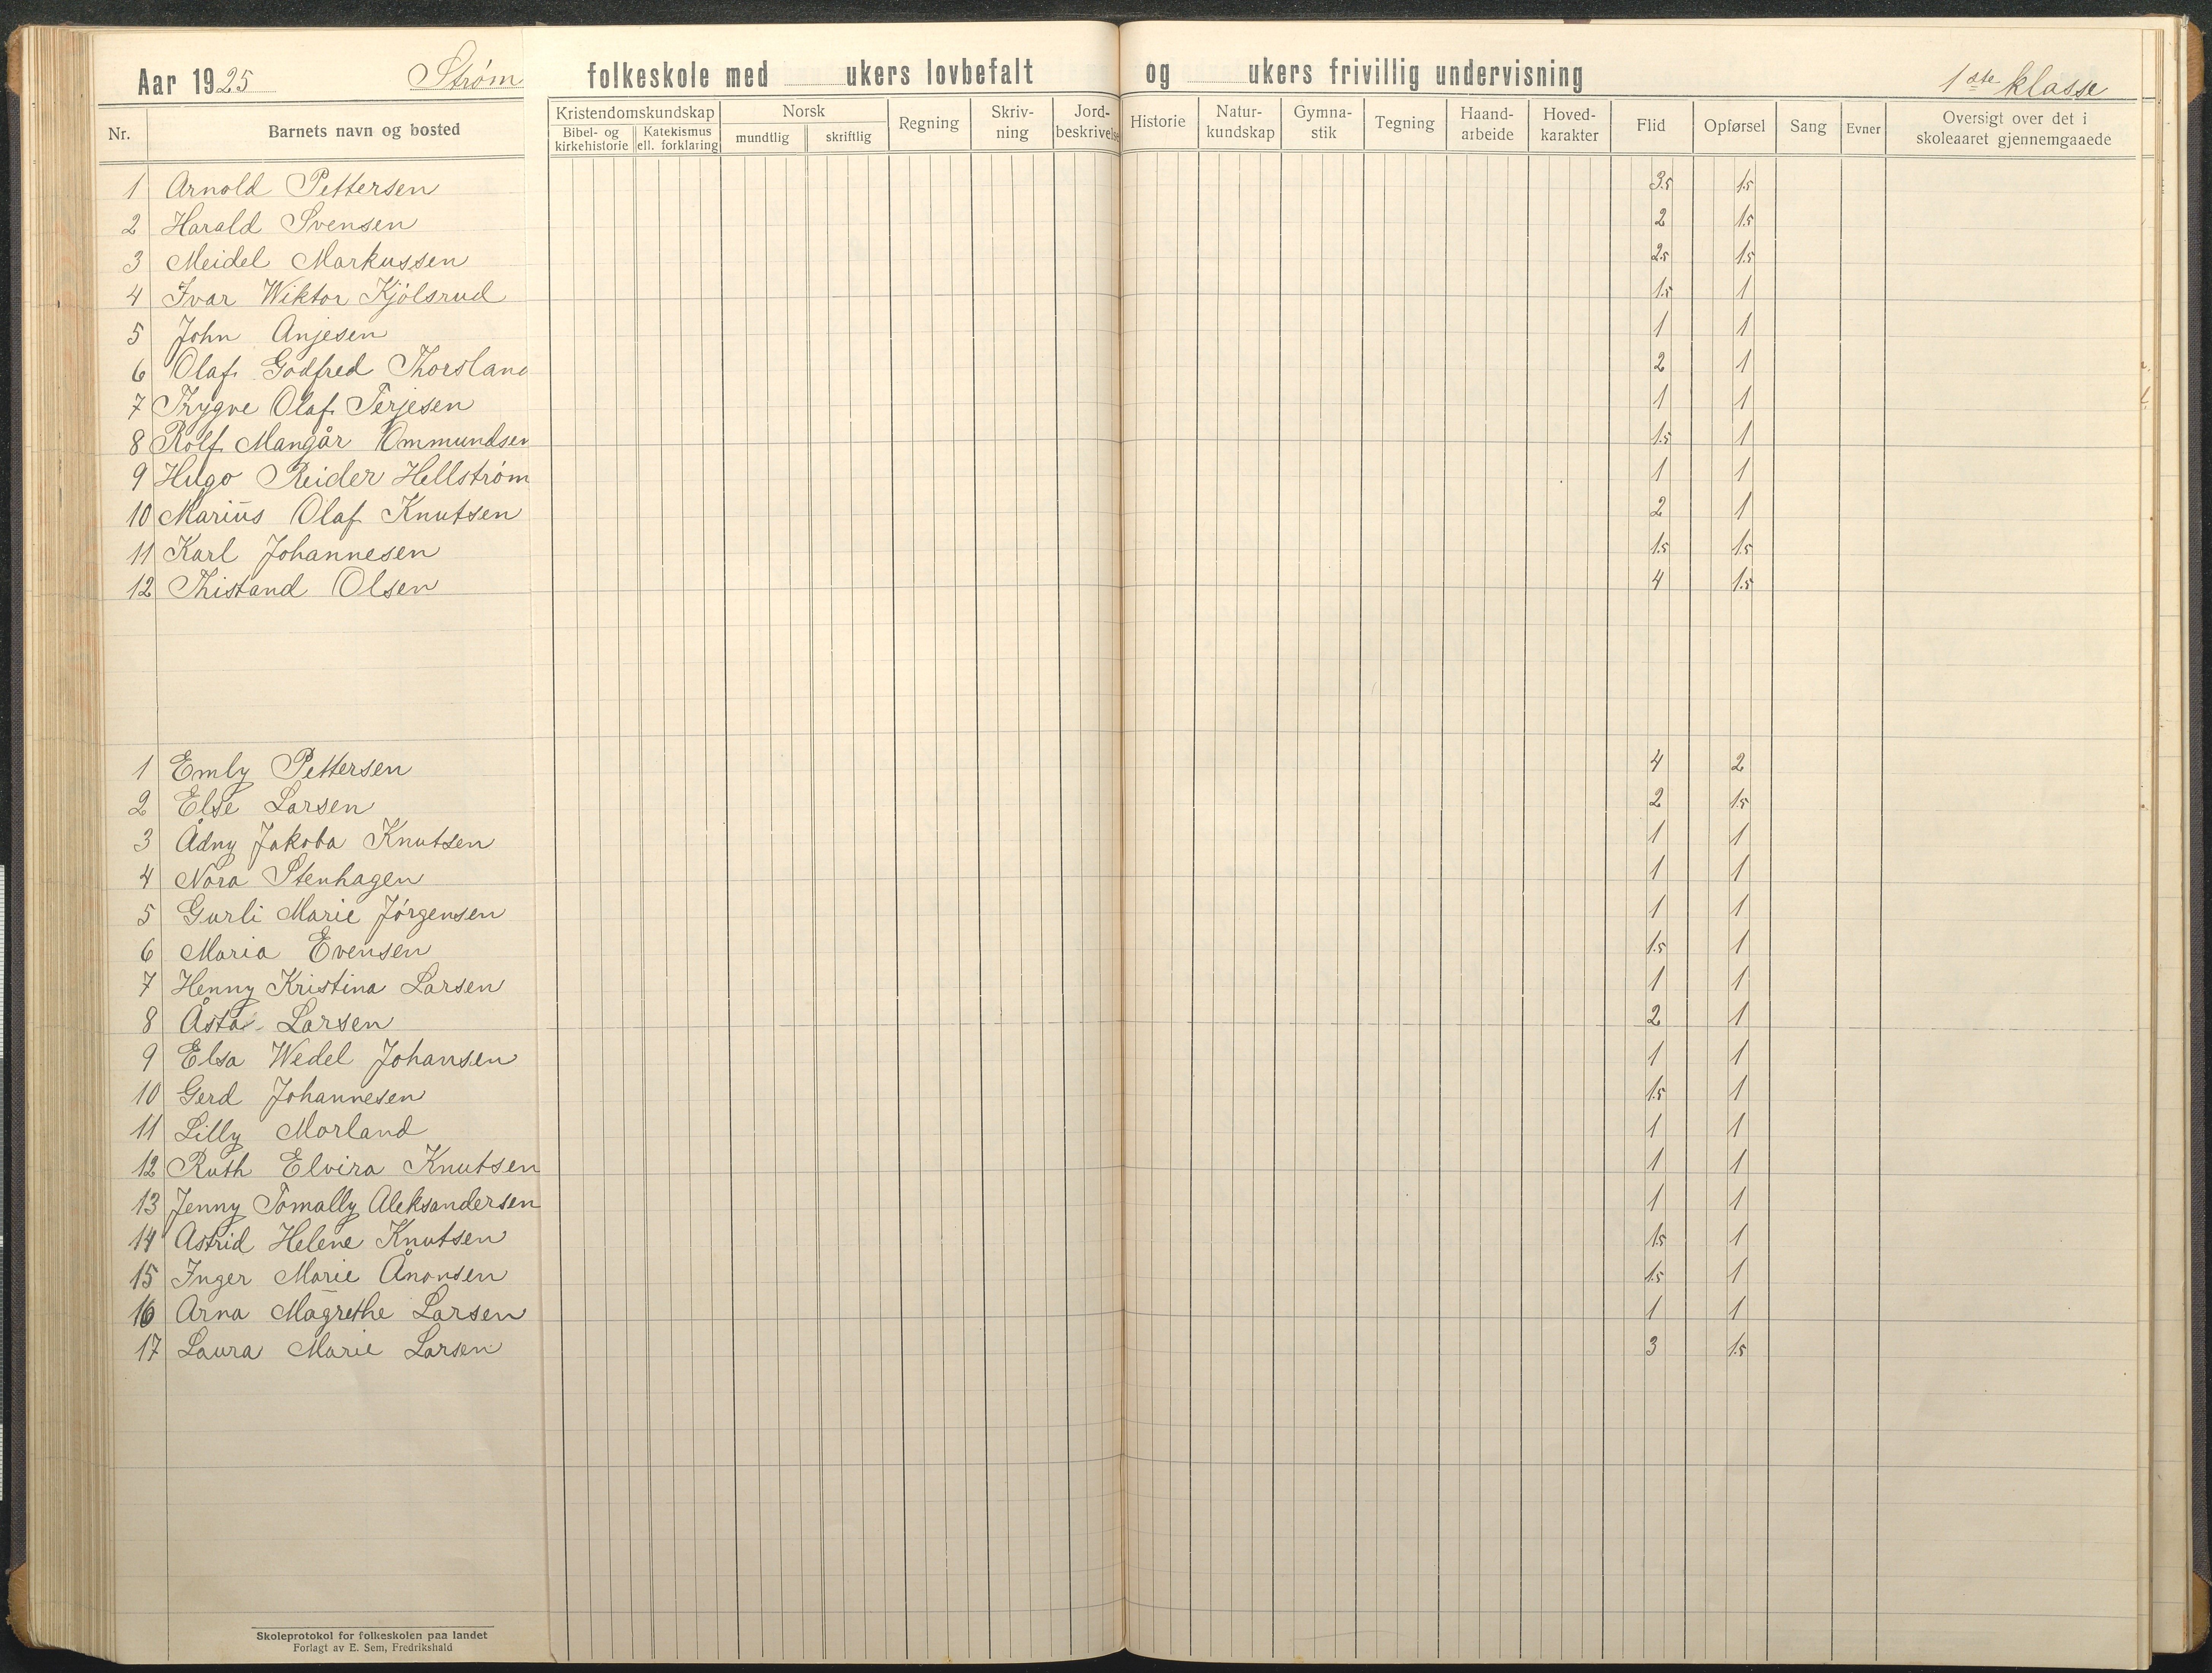 Aar 1925 Strøm folkeskole med ukers lovbefalt og ukers frivillig undervisning 1ste klasse
Nr. Barnets navn og bosted Kristendomskundskap Bibel- og kirkehistorie Katekismus ell. forklaring Norsk mundtlig skriftlig Regning Skriv-ning Jord-beskrivelse Historie Natur-kundskap Gymna-stik Tegning Haand-arbeide Hoved-karakter Flid Opførsel Sang Evner Oversigt over det i skoleaaret gjennemgaaede
1 Arnold Pettersen 3.5 1.5
2 Harald Svensen 2 1.5
3 Meidel Markussen 2.5 1.5
4 Ivar Wiktor Kjölsrud 1.5 1
5 John Anjesen 1 1
6 Olaf Godfred Thorsland 2 1
7 Trygve Olaf Terjesen 1 1
8 Rolf Mangår Ommundsen 1.5 1
9 Hugo Reider Hellström 1 1
10 Marius Olaf Knutsen 2 1
11 Karl Johannesen 1.5 1.5
12 Thistand Olsen 4 1.5
1 Emly Pettersen 4 2
2 Else Larsen 2 1.5
3 Ådny Jakoba Knutsen 1 1
4 Nora Stenhagen 1 1
5 Gurli Marie Jörgensen 1 1
6 Maria Evensen 1.5 1
7 Henny Kristina Larsen 1 1
8 Åsta Larsen 2 1
9 Elsa Wedel Johansen 1 1
10 Gerd Johannesen 1.5 1
11 Lilly Morland 1 1
12 Ruth Elvira Knutsen 1 1
13 Jenny Tomally Aleksandersen 1 1
14 Astrid Helene Knutsen 1.5 1
15 Inger Marie Ånonsen 1.5 1
16 Arna Magrethe Larsen 1 1
17 Laura Marie Larsen 3 1.5
Skoleprotokol for folkeskolen paa landet
Forlagt av E. Sem, Fredrikshald